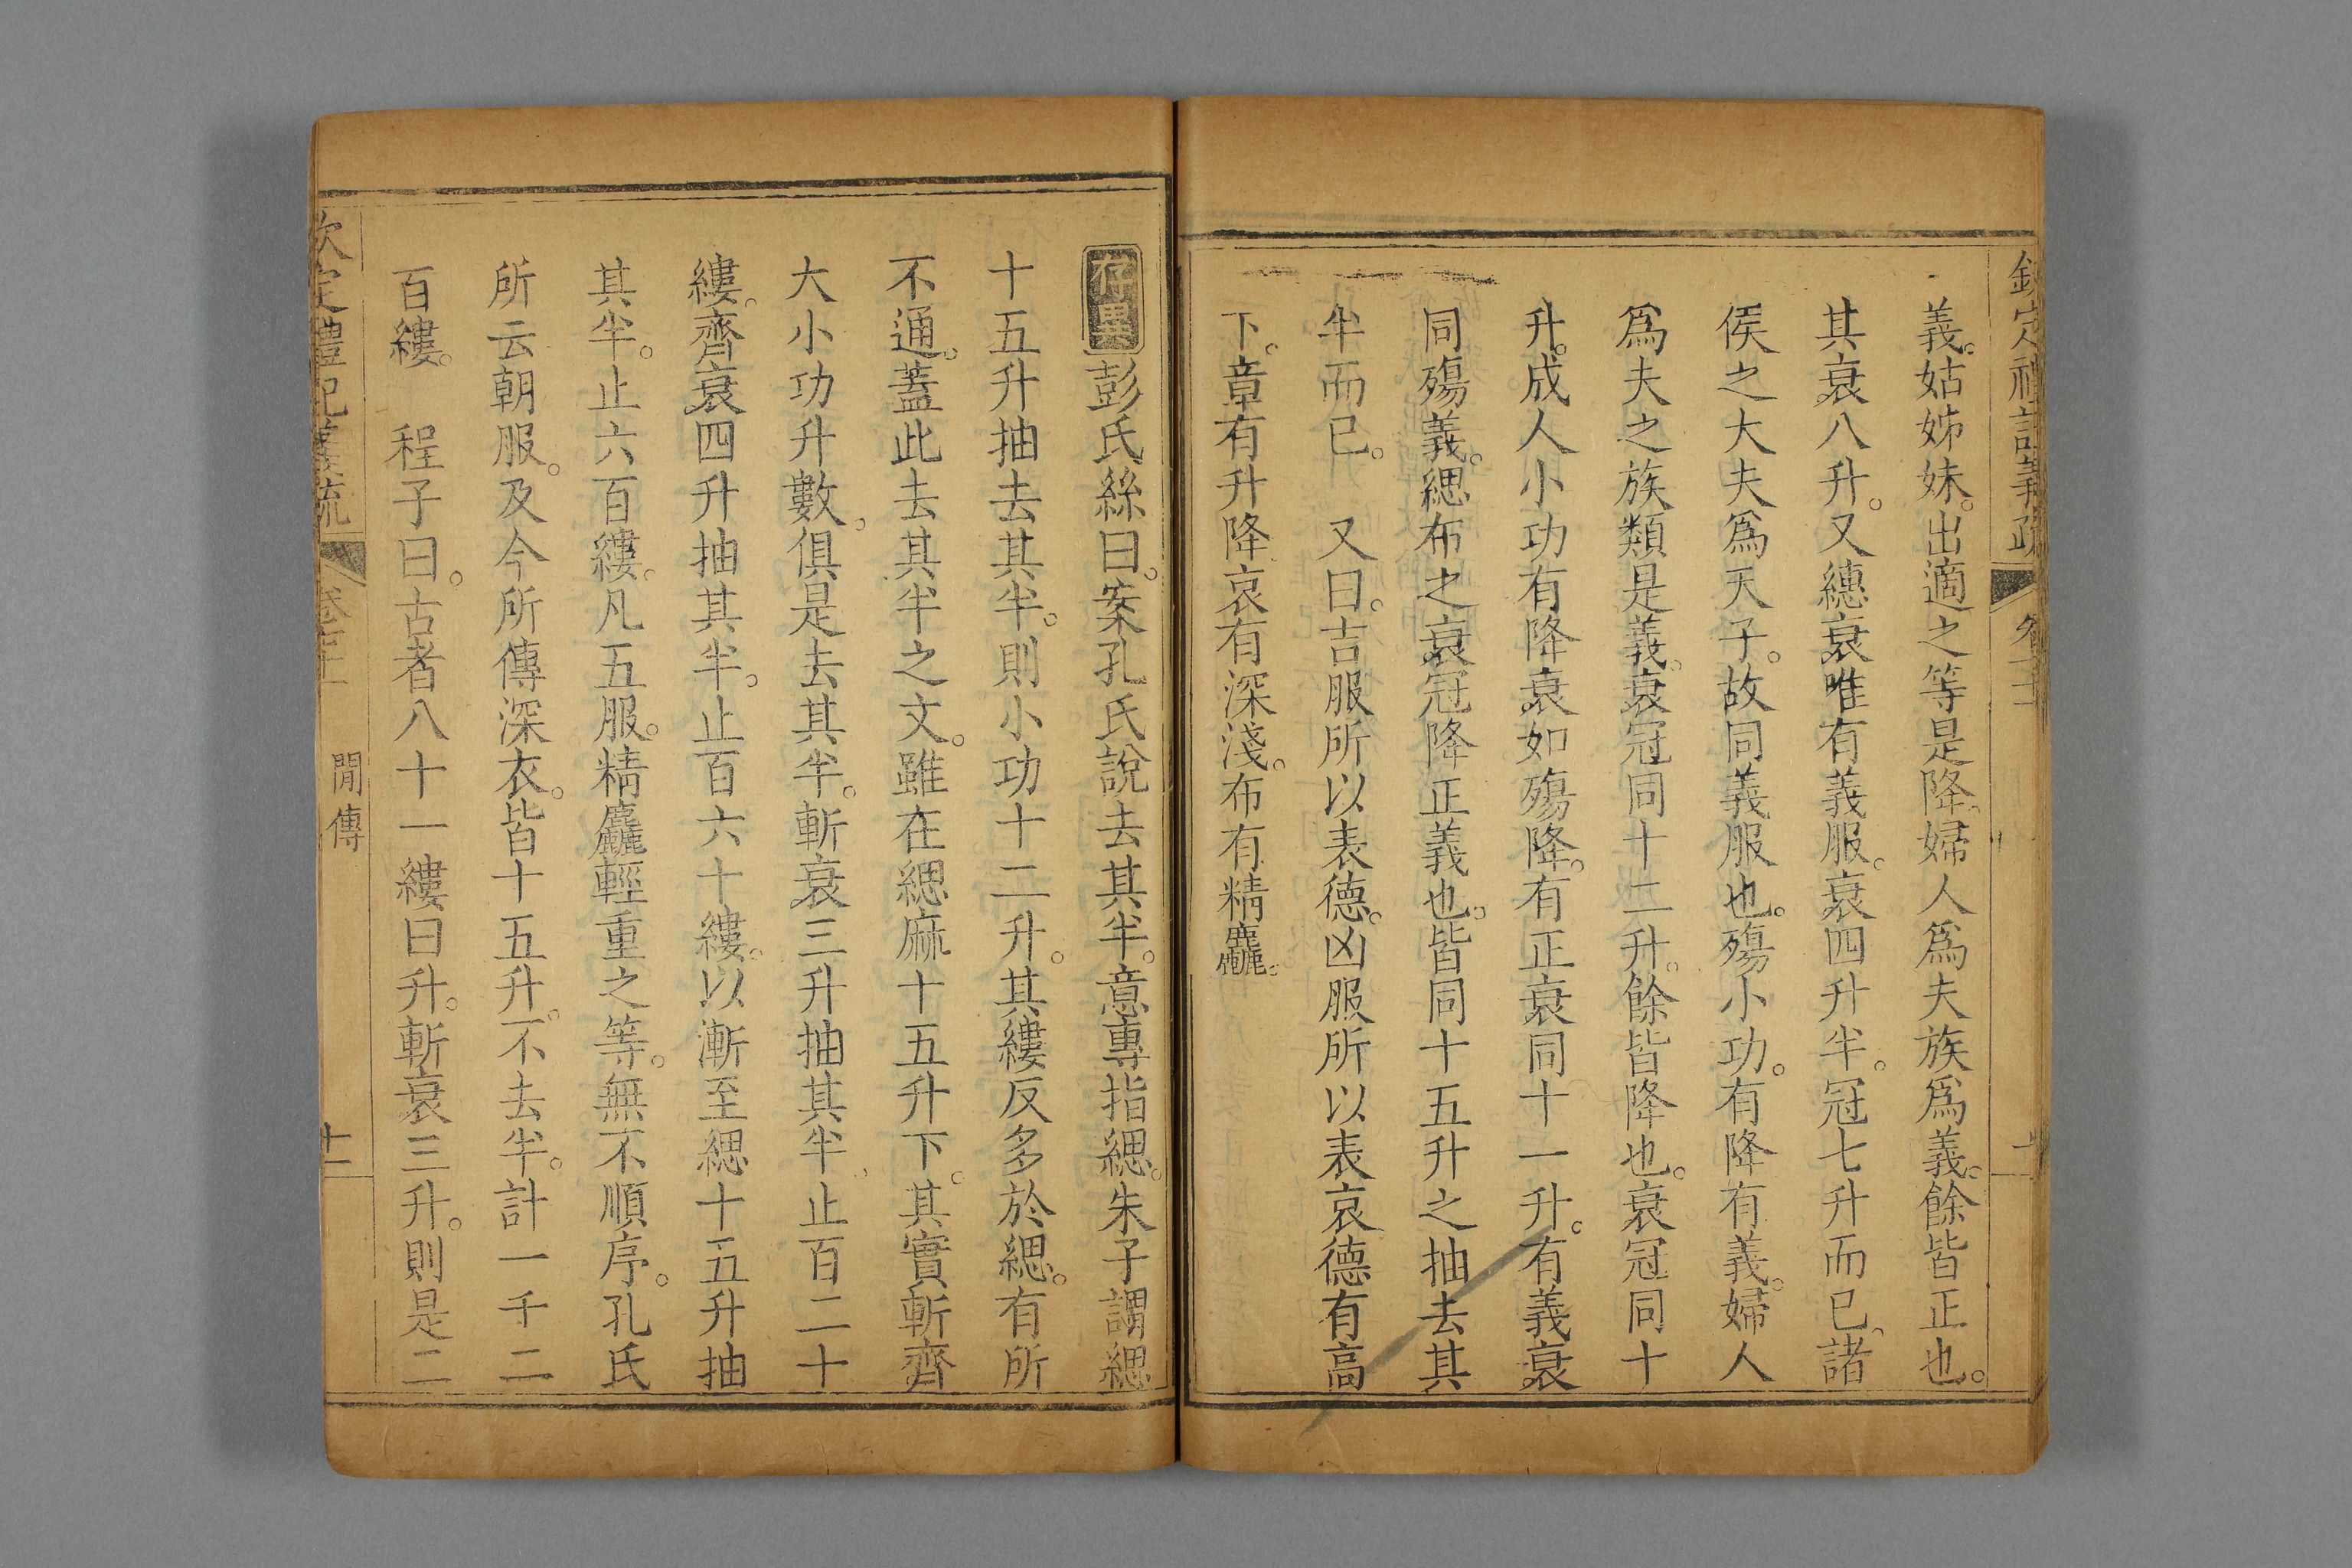 欽定禮記義疏
義。姑姊妹。出適之等是降。婦人爲夫族爲義。餘皆正也。
其衰八升。又繐衰唯有義服。衰四升半。冠七升而已。諸
侯之大夫爲天子。故同義服也。殤小功。有降有義。婦人
爲夫之族類是義。衰冠同十二升。餘皆降也。衰冠同十
升。成人小功有降衰如殤降。有正衰同十一升。有義衰
同殤義。緦布之衰冠降正義也。皆同十五升之抽去其
半而已。　又曰。吉服所以表德。凶服所以表哀德有高
下。章有升降哀有深淺。布有精麤。
存異彭氏絲曰。案孔氏說去其半。意專指緦。朱子謂緦
十五升抽去其半。則小功十二升。其縷反多於緦。有所
不通。蓋此去其半之文。雖在緦麻十五升下。其實斬齊
大小功升數。俱是去其半。斬衰三升抽其半。止百二十
縷。齊衰四升抽其半。止百六十縷。以漸至緦十五升抽
其半。止六百縷。凡五服。精麤輕重之等。無不順序。孔氏
所云朝服。及今所傳深衣。皆十五升。不去半。計一千二
百縷。　程子曰。古者八十一縷曰升。斬衰三升。則是二
欽定禮記義疏
閒傳
十二